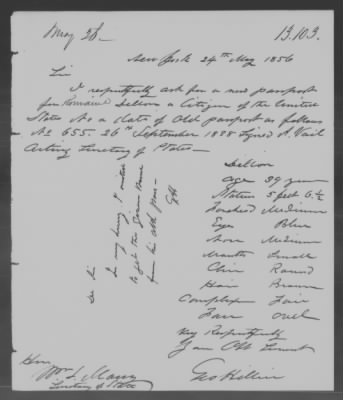 May 28 —
13.103.
New York 24th May 1856
Sir
I respectfully ask for a new passport
for Romain Dellon a Citizen of the United
States No & date of Old Passport as follows
No 655. 26th September 1838 Signed A. Vail
Acting Secretary of State—
Dellon
age 39 years
Stature 5 feet 6 ½
Forehead Medium
Eyes Blue
Nose Medium
Mouth Small
Chin Round
Hair Brown
Complexion Fair
Face Oval
Very Respectfully
Your Obt Servant
Geo
Dr Sir
In my hurry I omitted
to get the Given Name
from his old pass—
GH
Hon
Wm L Marcy
Secretary of State